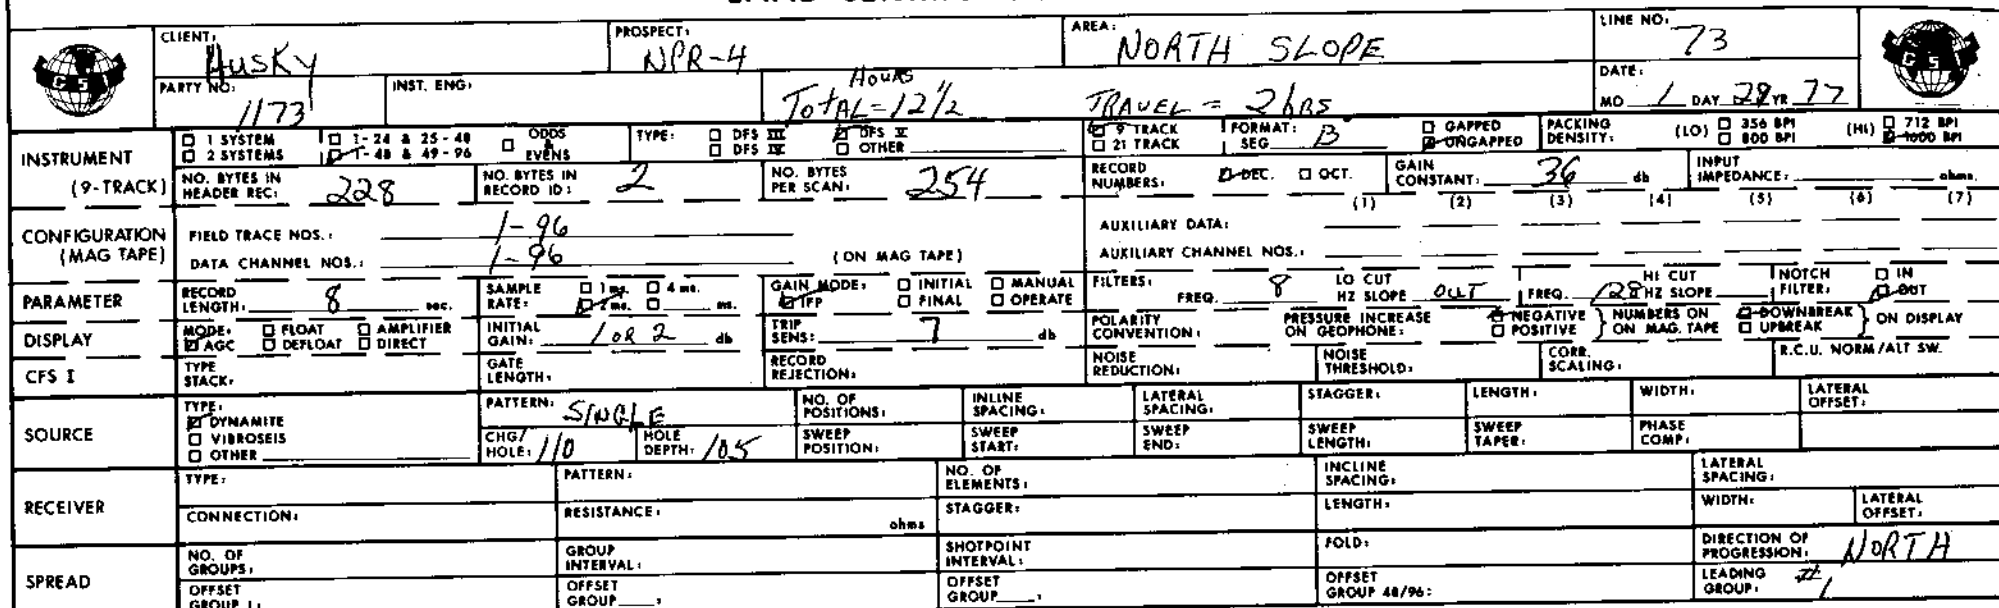 CLIENT: Husky PROSPECT: NPR-4 AREA: NORTH SLOPE LINE NO: 73
GSI GSI
PARTY NO: 1173 INST. ENG: Hours Total=12 1/2 TRAVEL = 2 hrs DATE: MO 1 DAY 29 YR 77
INSTRUMENT (9-TRACK)
1 SYSTEM 1-24 & 25-48 ODDS & EVENS TYPE: DFS III DFS V 9 TRACK FORMAT: SEG B GAPPED PACKING DENSITY: (LO) 356 BPI (HI) 712 BPI
2 SYSTEMS 1-48 & 49-96 DFS IV OTHER 21 TRACK UNGAPPED 800 BPI 1600 BPI
NO. BYTES IN HEADER REC: 228 NO. BYTES IN RECORD ID: 2 NO. BYTES PER SCAN: 254 RECORD NUMBERS: DEC. OCT. GAIN CONSTANT: 36 db INPUT IMPEDANCE: ohms.
(1) (2) (3) (4) (5) (6) (7)
CONFIGURATION (MAG TAPE)
FIELD TRACE NOS.: 1-96 AUXILIARY DATA:
DATA CHANNEL NOS.: 1-96 (ON MAG TAPE) AUXILIARY CHANNEL NOS.:
PARAMETER RECORD LENGTH: 8 sec. SAMPLE RATE: 1 ms. 4 ms. 2 ms. ms. GAIN MODE: INITIAL MANUAL IFP FINAL OPERATE FILTERS: FREQ. 8 LO CUT HZ SLOPE OUT FREQ. 128 HI CUT HZ SLOPE NOTCH FILTER: IN OUT
DISPLAY MODE: FLOAT AMPLIFIER AGC DEFLOAT DIRECT INITIAL GAIN: 1 OR 2 db TRIP SENS: 7 db POLARITY CONVENTION: PRESSURE INCREASE ON GEOPHONE: NEGATIVE POSITIVE NUMBERS ON ON MAG. TAPE DOWNBREAK UPBREAK ON DISPLAY
CFS I TYPE STACK: GATE LENGTH: RECORD REJECTION: NOISE REDUCTION: NOISE THRESHOLD: CORR. SCALING: R.C.U. NORM/ALT SW.
SOURCE TYPE: DYNAMITE VIBROSEIS OTHER
PATTERN: SINGLE NO. OF POSITIONS: INLINE SPACING: LATERAL SPACING: STAGGER: LENGTH: WIDTH: LATERAL OFFSET:
CHG/HOLE: 110 HOLE DEPTH: 105 SWEEP POSITION: SWEEP START: SWEEP END: SWEEP LENGTH: SWEEP TAPER: PHASE COMP:
RECEIVER TYPE: PATTERN: NO. OF ELEMENTS: INCLINE SPACING: LATERAL SPACING:
CONNECTION: RESISTANCE: ohms STAGGER: LENGTH: WIDTH: LATERAL OFFSET:
SPREAD NO. OF GROUPS: GROUP INTERVAL: SHOTPOINT INTERVAL: FOLD: DIRECTION OF PROGRESSION: NORTH
OFFSET GROUP 1: OFFSET GROUP : OFFSET GROUP : OFFSET GROUP 48/96: LEADING GROUP: #1